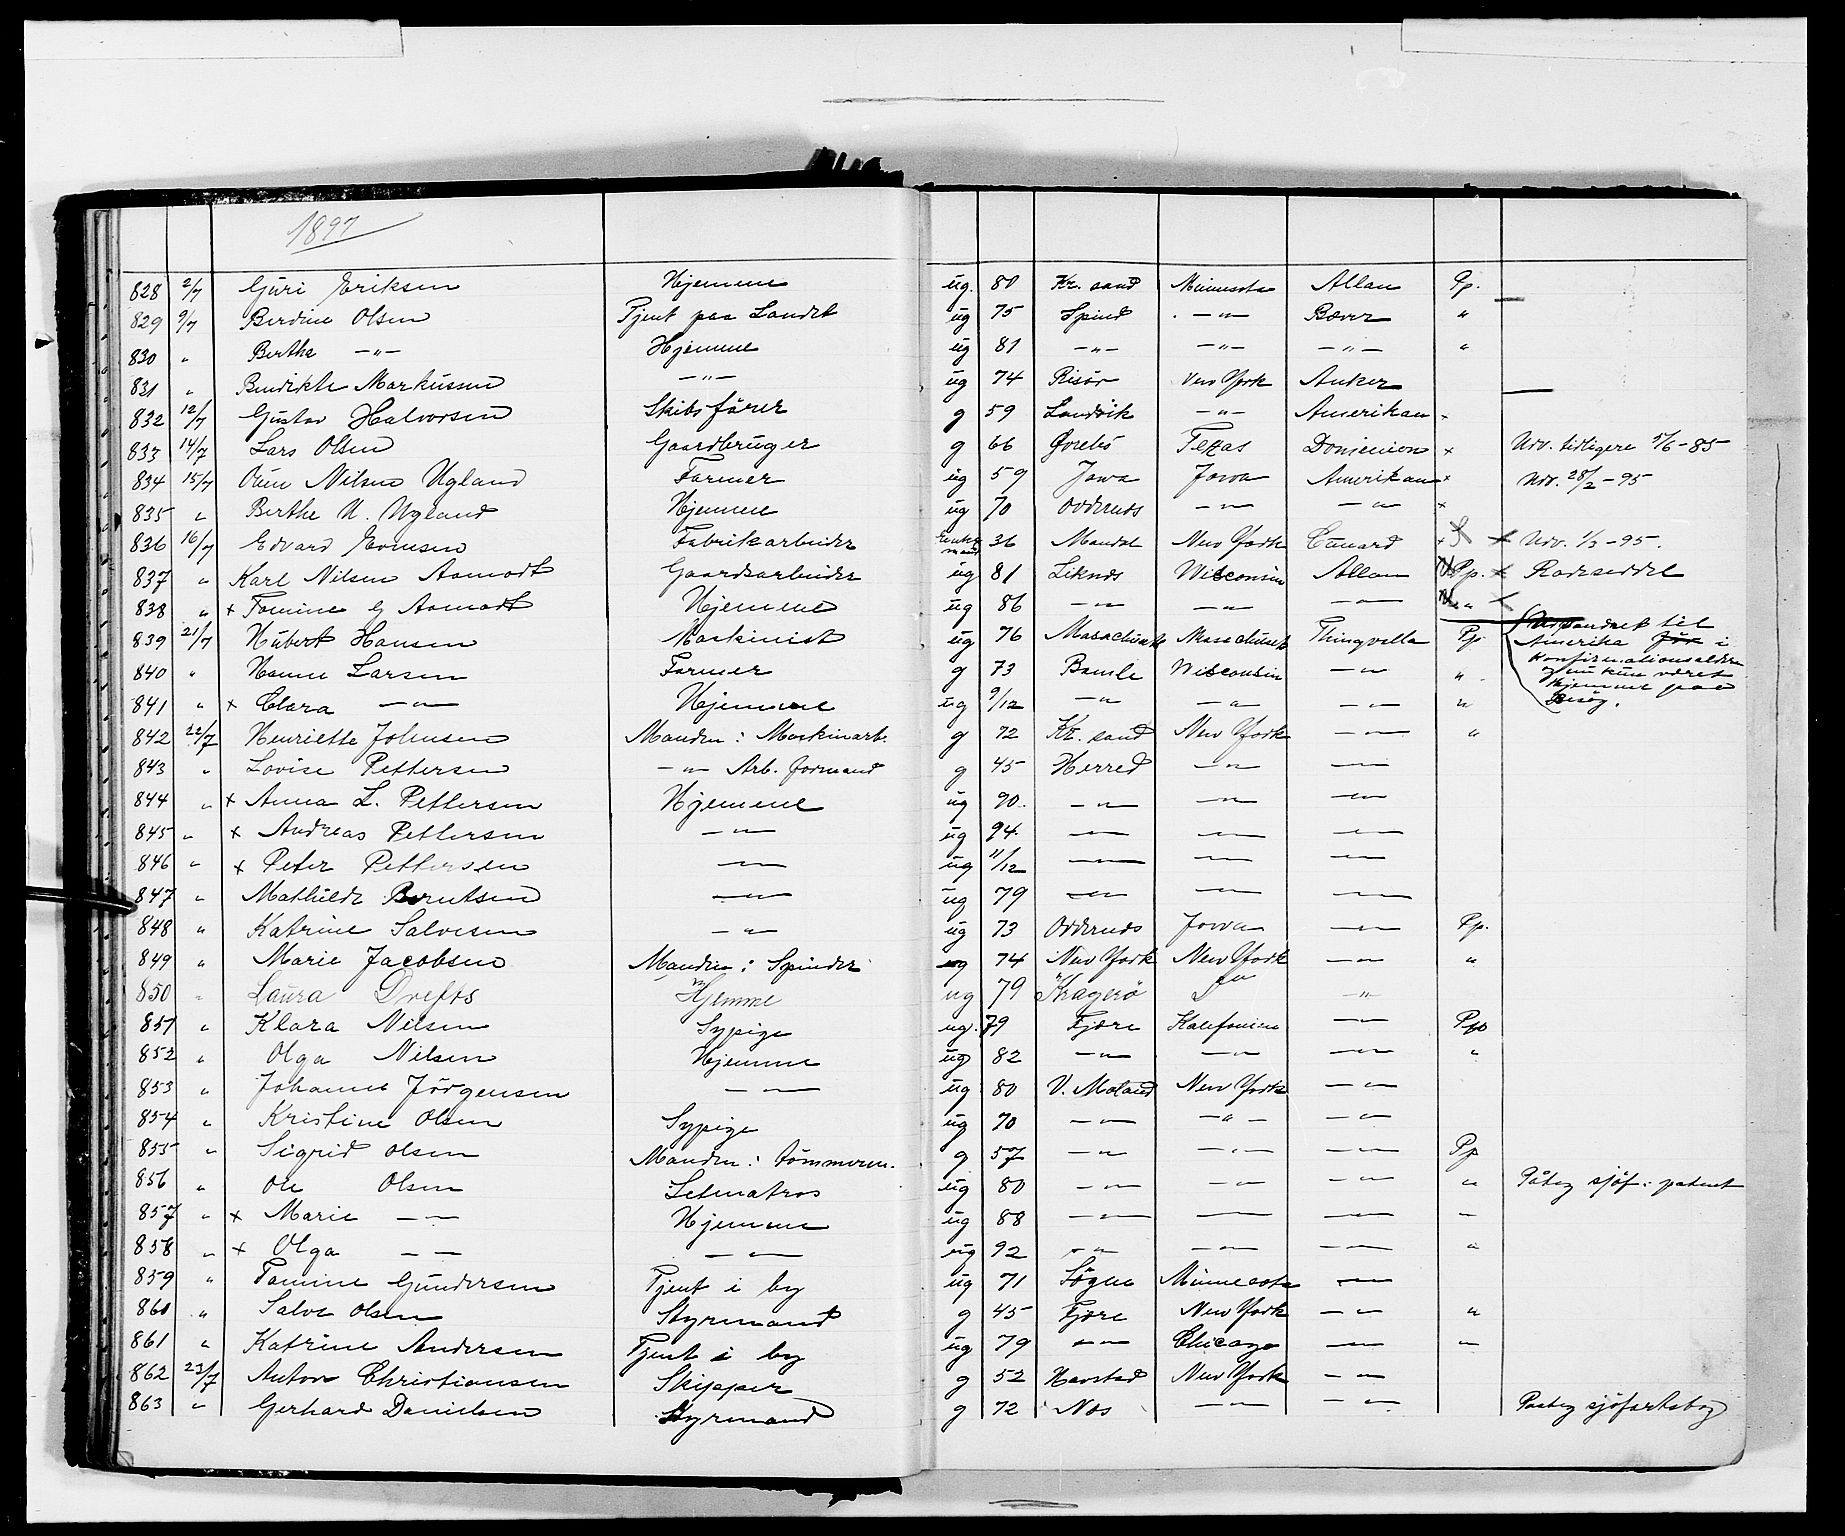 1897
828 2/7 Guri Eriksen Hjemme ug. 80 Kr. sand Minnesota Allan Pp.
829 9/7 Berdine Olsen Tjent paa Landet ug 75 Spind — " — Bæver "
830 " Berthe — " — Hjemme ug 81 — " — — " — — " — "
831 " Bendikte Markussen — " — ug 74 Risör New York Anker
832 12/7 Gustav Halvorsen Skibsförer g 59 Landvik — " — Amerikan
833 14/7 Lars Olsen Gaardbruger g 66 Øvrebö Texas Dominion x Udv. tidligere 5/6-85
834 15/7 Nilsen Ugland Farmer ug 59 Jowa Jowa Amerikan x Udv. 28/2-95
835 " Berthe N. Ugland Hjemme ug 70 Oddernes — " — — " — x
836 16/7 Edvard Evensen Fabrikarbeider Enkemand 36 Mandal New York Cunard x Udv. 1/3-95.
837 " Karl Nilsen Aamodt Gaardsarbeider ug 81 Liknes Wisconsin Allan Pp. x Rodeseddel
838 " x Tomine G Aamodt Hjemme ug 86 — " — — " — — " — "
839 21/7 Hubert Hansen Maskinist ug 76 Masachusets Massachusets Thingvalla Pp Udvandret til
Amerika för i
Konfirmationsalderen
og nu kun været
hjemme paa
Besög.
840 " Hanne Larsen Farmer g 73 Bamle Wisconsin — " — "
841 " x Clara — " — Hjemme ug 9/12 — " — — " — — " — "
842 22/7 Henriette Johnsen Manden: Maskinarb. g 72 Kr. sand New York — " — "
843 " Lovise Pettersen — " — Arb. formand g 45 Herred — " — — " —
844 " x Anna L. Pettersen Hjemme ug 90. — " — — " — — " —
845 " x Andreas Pettersen — " — ug 94. — " — — " — — " —
846 " x Peter Pettersen — " — ug 11/12 — " — — " — — " —
847 " Mathilde Berntsen — " — ug 79 — " — — " — — " —
848 " Katrine Salvesen — " — ug 73 Oddernes Jowa — " — Pp.
849 " Marie Jacobsen Manden: Spinder g 74 New York New York — " — "
850 " Laura Drefts Hjemme ug 79 Kragerö — " — "
851 " Klara Nilsen Sypige ug. 79 Fjære Kalefonien — " — Pp
852 " Olga Nilsen Hjemme ug 82 — " — — " — — " — "
853 " Johanne Jörgensen — " — ug 80 V. Moland New York — " —
854 " Kristine Olsen Sypige ug 70 — " — — " — — " —
855 " Sigrid Olsen Manden: tömmerm. g 57 — " — — " — — " — Pp
856 " Ole Olsen Letmatros ug 80 — " — — " — — " — " Påteg sjöf: patent
857 " x Marie — " — Hjemme ug 88 — " — — " — — " — "
858 " x Olga — " — — " — ug 92 — " — — " — — " — "
859 " Tomine Gundersen Tjent i by ug 71 Sögne Minnesota — " —
860 " Salve Olsen Styrmand g 45 Fjære New York — " — "
861 " Katrine Andersen Tjent i by ug 79 — " — Chicago — " — "
862 23/7 Anton Christiansen Skipper g 52 Havstad New York — " —
863 " Gerhard Danielsen Styrmand g 72 Nes — " — — " — Paateg sjöfartsbog